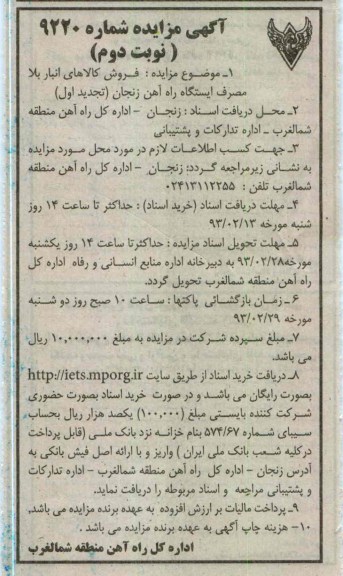 آگهی مزایده شماره ۹۲۲۰
( نوبت دوم)
۱ـ موضوع مزایده : فروش کالاهای انبار بلا
مصرف ایستگاه راه آهن زنجان (تجدید اول)
۲ـ محل دریافت اسناد : زنجان - اداره کل راه آهن منطقه
شمالغرب ـ اداره تدارکات و پشتیبانی
۳ـ جهت کسب اطلاعات لازم در مورد محل مورد مزایده
به نشانی زیرمراجعه گردد: زنجان - اداره کل راه آهن منطقه
شمالغرب تلفن : ۰۲۴۱۳۱۱۲۲۵۵
۴ـ مهلت دریافت اسناد (خرید اسناد) : حداکثر تا ساعت ۱۴ روز
شنبه مورخه ۹۳/۰۲/۱۳
۵ـ مهلت تحویل اسناد مزایده : حداکثرتا ساعت ۱۴ روز یکشنبه
مورخه۹۳/۰۲/۲۸ به دبیرخانه اداره منابع انسانی و رفاه اداره کل
راه آهن منطقه شمالغرب تحویل گردد.
۶ـ زمان بازگشائی پاکتها : ساعت ۱۰ صبح روز دو شنبه
مورخه ۹۳/۰۲/۲۹
۷ـ مبلغ سپرده شرکت در مزایده به مبلغ ۱۰,۰۰۰,۰۰۰ ریال
می باشد.
۸ـ دریافت خرید اسناد از طریق سایت http://iets.mporg.ir
بصورت رایگان می باشد و در صورت خرید اسناد بصورت حضوری
شرکت کننده بایستی مبلغ (۱۰۰,۰۰۰) یکصد هزار ریال بحساب
سیبای شماره ۵۷۴/۶۷ بنام خزانه نزد بانک ملی (قابل پرداخت
درکلیه شعب بانک ملی ایران ) واریز و با ارائه اصل فیش بانکی به
آدرس زنجان - اداره کل راه آهن منطقه شمالغرب - اداره تدارکات
و پشتیبانی مراجعه و اسناد مربوطه را دریافت نماید.
۹ـ پرداخت مالیات بر ارزش افزوده به عهده برنده مزایده می باشد.
۱۰- هزینه چاپ آگهی به عهده برنده مزایده می باشد .
اداره کل راه آهن منطقه شمالغرب